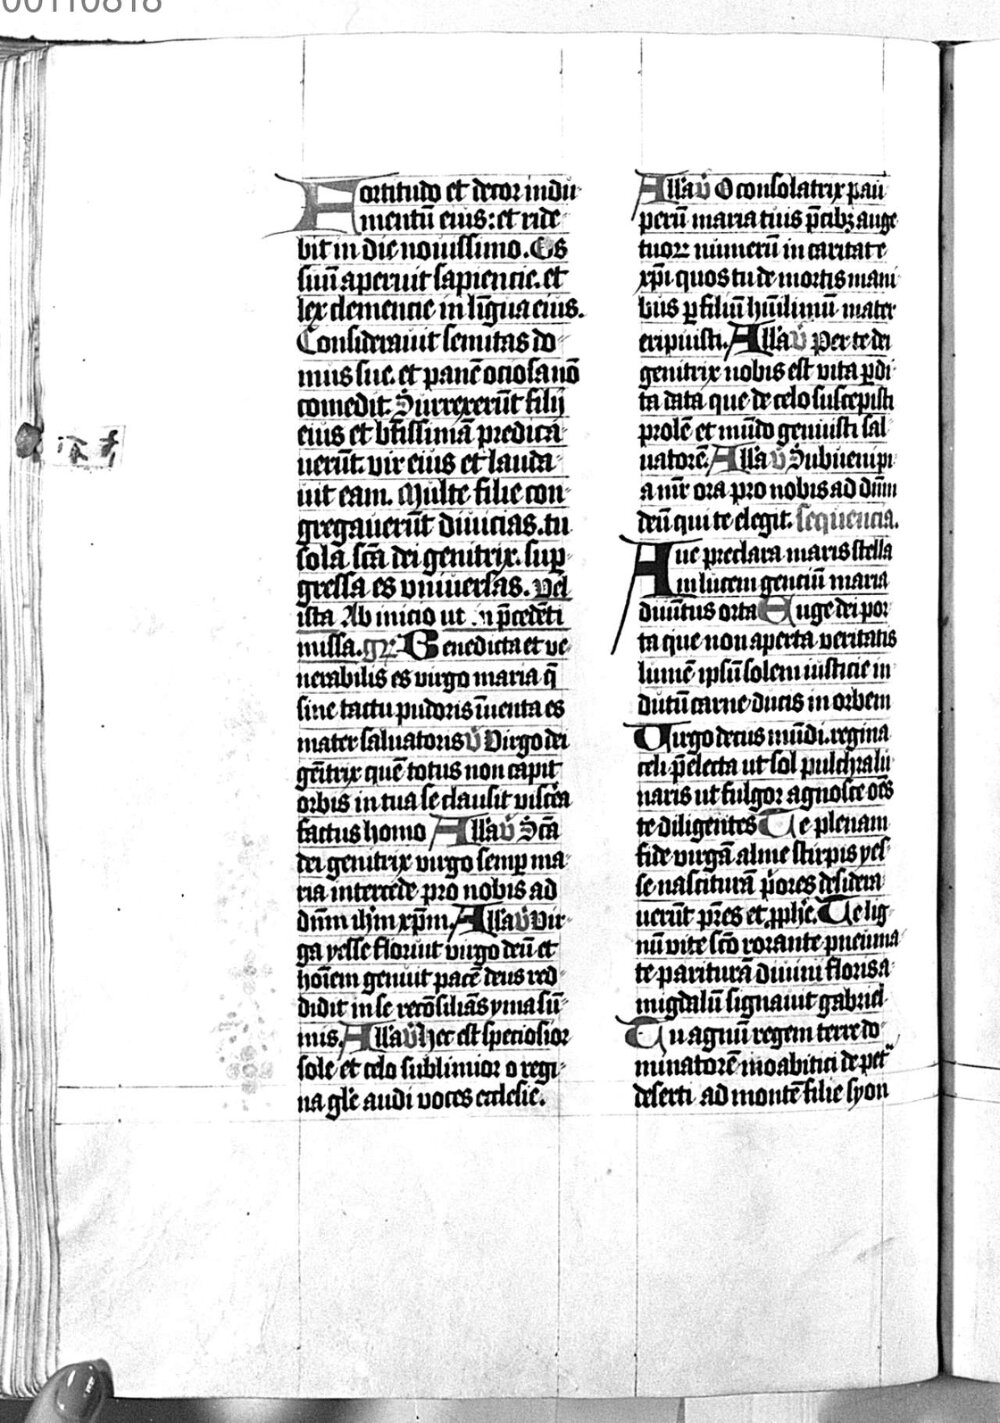 00110818
Fortitudo et decor indu
mentū eius: et ride
bit in die nouissimo. Os
suū aperuit sapiencie. et
lex clemencie in līgua eius.
Considerauit semitas do
mus sue. et panē ociosa nō
comedit. Surrexerūt filij
eius et btīssimā predica
uerūt. vir eius et lauda
uit eam. Multe filie con
gregauerūt diuicias. tu
sola scā dei genitrix. sup
gressa es vniuersas. Vel
ista Ab inicio ut in p̄cedēti
missa. gr̄. Benedicta et ve
nerabilis es uirgo maria q̄
sine tactu pudoris īuenta es
mater saluatoris v̄ Virgo dei
gēitrix quē totus non capit
orbis in tua se clausit visc̄a
factus homo Allā v̄ Scā
dei genitrix uirgo semp ma
ria intercede pro nobis ad
dn̄m ih̄m xp̄m. Allā v̄ Vir
ga yesse floruit uirgo deū et
hoīem genuit pacē deus red
didit in se recōsiliās yma sū
mis. Allā v̄ Hec est speciosior
sole et celo sublimior o regi
na gl̄e audi uoces ecclesie.
Allā v̄ O consolatrix pau
perū maria tuis p̄cibꝫ auge
tuoꝝ numerū in caritate
xp̄i quos tu de mortis mani
bus p filiū hūilimū mater
eripuisti. Allā v̄ Per te dei
genitrix nobis est vita pdi
ta data que de celo suscepisti
prolē et mūdo genuisti sal
uatorē. Allā v̄ Subueni pi
a mr̄ ora pro nobis ad dn̄m
deū qui te elegit. sequencia.
Aue preclara maris stella
in lucem genciū maria
diuītus orta Euge dei por
ta que non aperta veritatis
lumē ipsū solem iusticie in
dutū carne ducis in orbem
Uirgo decus mūdi. regina
celi p̄electa ut sol pulchra lu
naris ut fulgor agnosce oēs
te diligentes Te plenam
fide virgā alme stirpis yes
se nasciturā p̄ores desidera
uerūt pr̄es et pphē. Te lig
nū vite scō rorante pneuma
te parituram diuini floris a
migdalū signauit gabriel
Tu agnū regem terre do
minatorē moabitici de pet
deserti ad montē filie syon